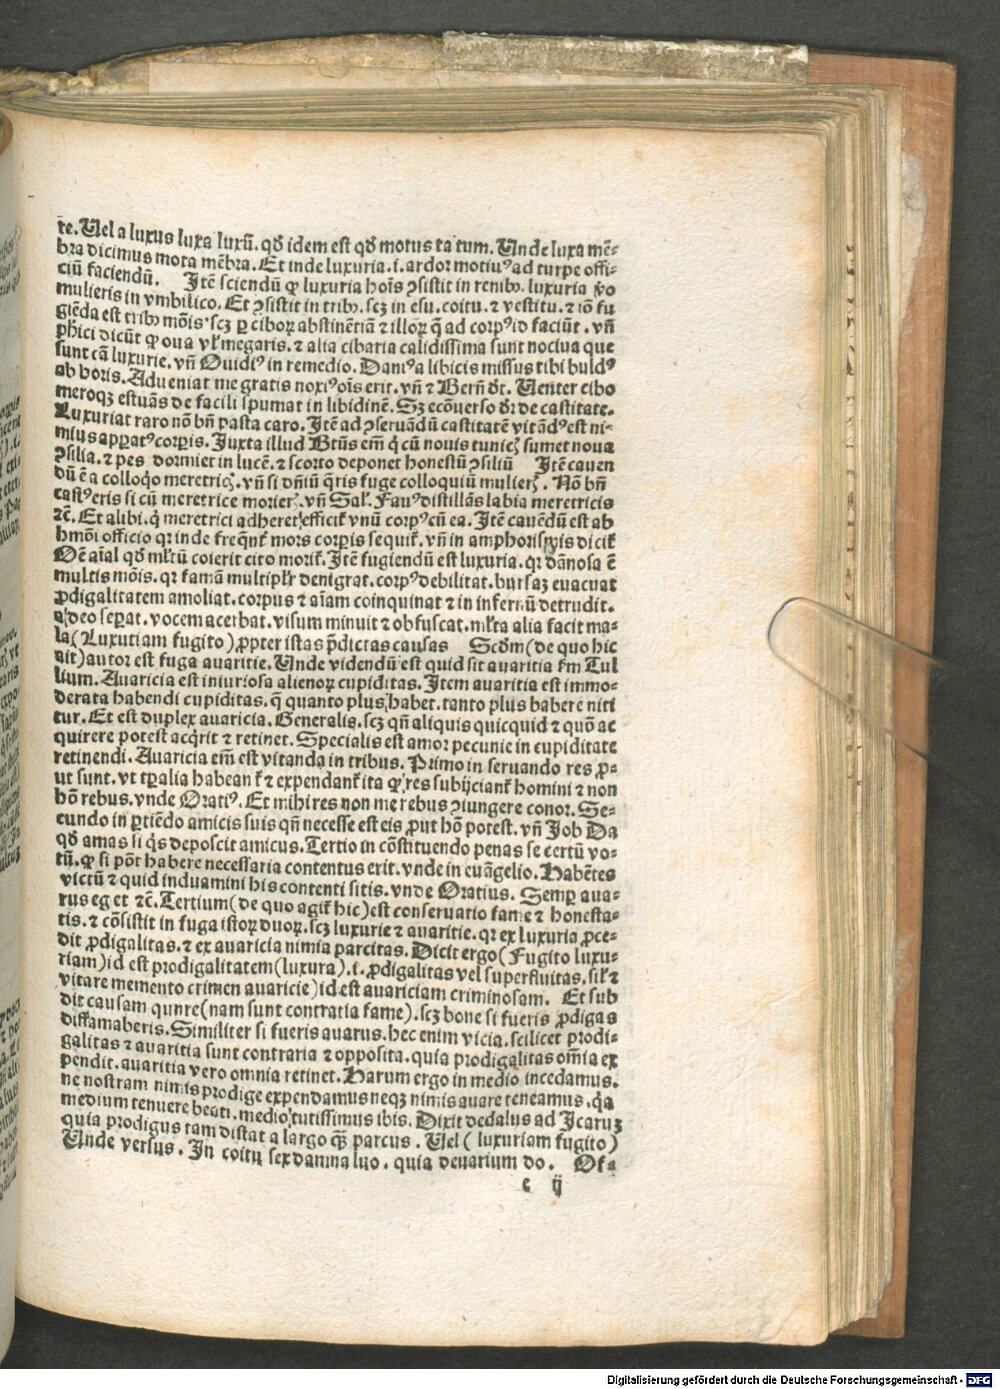 te. Uel a luxus luxa luxū. qđ idem est qđ motus ta tum. Unde luxa mē-
bra dicimus mota mēbra. Et inde luxuria .i. ardor motiuꝰ ad turpe offi-
ciū faciendū. Itē sciendū ꝙ luxuria hoīs ꝯsistit in renibꝫ. luxuria ꝟo
mulieris in vmbilico. Et ꝯsistit in tribꝫ. scꝫ in esu. coitu. ⁊ vestitu. ⁊ iō fu
giēda est tribꝫ mōis. scꝫ ꝑ ciboꝝ abstinētiā ⁊ illoꝝ q̄ ad corpꝰ id faciūt. vn̄
phici dicūt ꝙ oua vl' megaris. ⁊ alia cibaria calidissima sunt nociua que
sunt cā luxurie. vn̄ Ouidiꝰ in remedio. Daniꝰ a libicis missus tibi buldꝰ
ab horis. Adueniat megaris noxiꝰ oīs erit. vn̄ ⁊ Bern̄ dt. Uenter cibo
meroqꝫ estuās de facili spumat in libidinē. Sꝫ ecōuerso dr de castitate.
Luxuriat raro nō bn̄ pasta caro. Itē ad ꝯseruādū castitatē vitādꝰ est ni-
mius apꝑatꝰ corꝑis. Iuxta illud Btūs em̄ q̇ cū nouis tunicꝭ sumet noua
ꝯsilia. ⁊ pes dormiet in lucē. ⁊ scorto deponet honestū ꝯsiliū Itē cauen
dū ē a colloq̇o meretricꝭ. vn̄ si dn̄iū q̄ris fuge colloquiū mulierꝭ. Nō bn̄
castꝰ eris si cū meretrice morierꝭ. vn̄ Sal'. Fauꝰ distillās labia meretricis
⁊c̄. Et alibi. q̇ meretrici adheret efficit̄ vnū corpꝰ cū ea. Itē cauēdū est ab
hmōi officio qr inde freq̄nt̄ mors corꝑis sequit̄. vn̄ in amphorismis dicit̄
Oē aīal qđ ml'tū coierit cito morit̄. Itē fugiendū est luxuria. qr dānosa ē
multis mōis. qr famā multipl'r denigrat. corpꝰ debilitat. bursaꝫ euacuat
ꝓdigalitatem amoliat. corpus ⁊ aīam coinquinat ⁊ in infernū detrudit.
a deo seꝑat. vocem acerbat. visum minuit ⁊ obfuscat. ml'ta alia facit ma-
la (Luxutiam fugito) ꝓpter istas p̄dictas causas Scđm (de quo hic
ait) autor est fuga avaritie. Unde videndū est quid sit avaritia scđm Tul
lium. Auaricia est iniuriosa alienoꝝ cupiditas. Item avaritia est immo-
derata habendi cupiditas. q̄ quanto plus habet. tanto plus habere niti
tur. Et est duplex auaricia. Generalis. scꝫ qn̄ aliquis quicquid ⁊ quō ac
quirere potest acq̇rit ⁊ retinet. Specialis est amor pecunie in cupiditate
retinendi. Auaricia em̄ est vitanda in tribus. Primo in seruando res ꝓ-
ut sunt. vt tꝑalia habeant̄ ⁊ expendant̄ ita ꝙ res subijciant̄ homini ⁊ non
hō rebus. vnde Oratiꝰ. Et mihi res non me rebus ꝯiungere conor. Se-
cundo in ꝑtiēdo amicis suis qn̄ necesse est eis ꝓut hō potest. vn̄ Job Da
qđ amas si q̇s deposcit amicus. Tertio in cōstituendo penas se certū vo-
tū. ꝙ si pōt habere necessaria contentus erit. vnde in euāgelio. Habētes
victū ⁊ quid induamini his contenti sitis. vnde Oratius. Semꝑ aua-
rus eget ⁊c̄. Tertium (de quo agit̄ hic) est conseruatio fame ⁊ honesta-
tis. ⁊ cōsistit in fuga istoꝝ duoꝝ. scꝫ luxurie ⁊ auaritie. qr ex luxuria ꝓce-
dit ꝓdigalitas. ⁊ ex auaricia nimia parcitas. Dicit ergo (Fugito luxu-
riam) id est prodigalitatem (luxura) .i. ꝓdigalitas vel superfluitas. sil'r ⁊
vitare memento crimen auaricie) id est auariciam criminosam. Et sub
dit causam qunre (nam sunt contratia fame). scꝫ bone si fueris ꝓdigas
diffamaberis. Similiter si fueris auarus. hec enim vicia. scilicet prodi-
galitas ⁊ auaritia sunt contraria ⁊ opposita. quia prodigalitas om̄ia ex
pendit. auaritia vero omnia retinet. Harum ergo in medio incedamus.
ne nostram nimis prodige expendamus neqꝫ nimis auare teneamus. q̇a
medium tenuere beati. medio tutissimus ibis. Dixit dedalus ad Icaruꝫ
quia prodigus tam distat a largo qꝫ̄ parcus. Uel (luxuriam fugito)
Unde versus. In coitu sex damna luo. quia deuarium do. Ofa
c ij
Digitalisierung gefördert durch die Deutsche Forschungsgemeinschaft - DFG